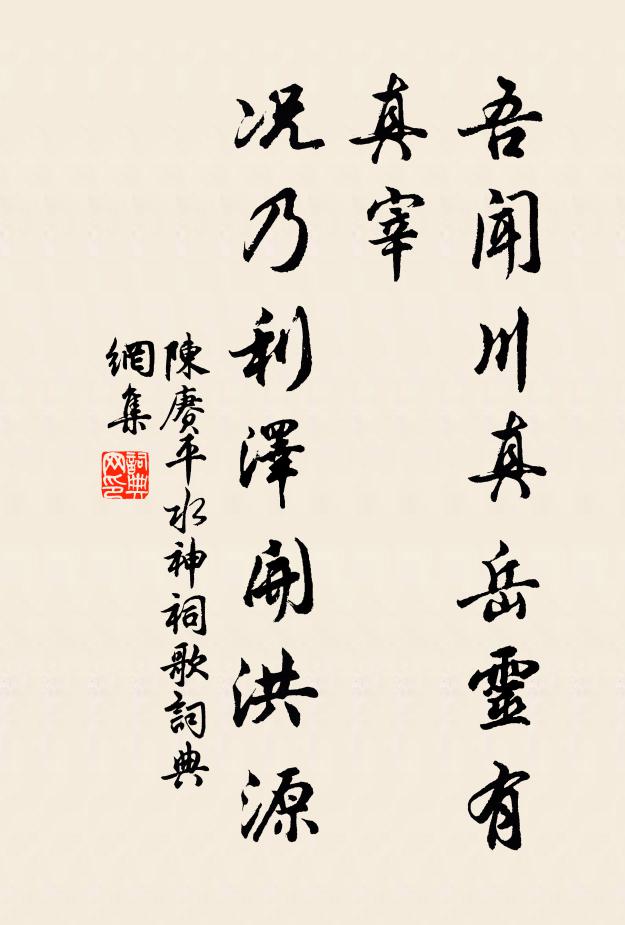 吾聞川真岳靈有
真宰
況乃利澤開洪源
陳賡平水神祠歌詞典
網集
詞典
网印